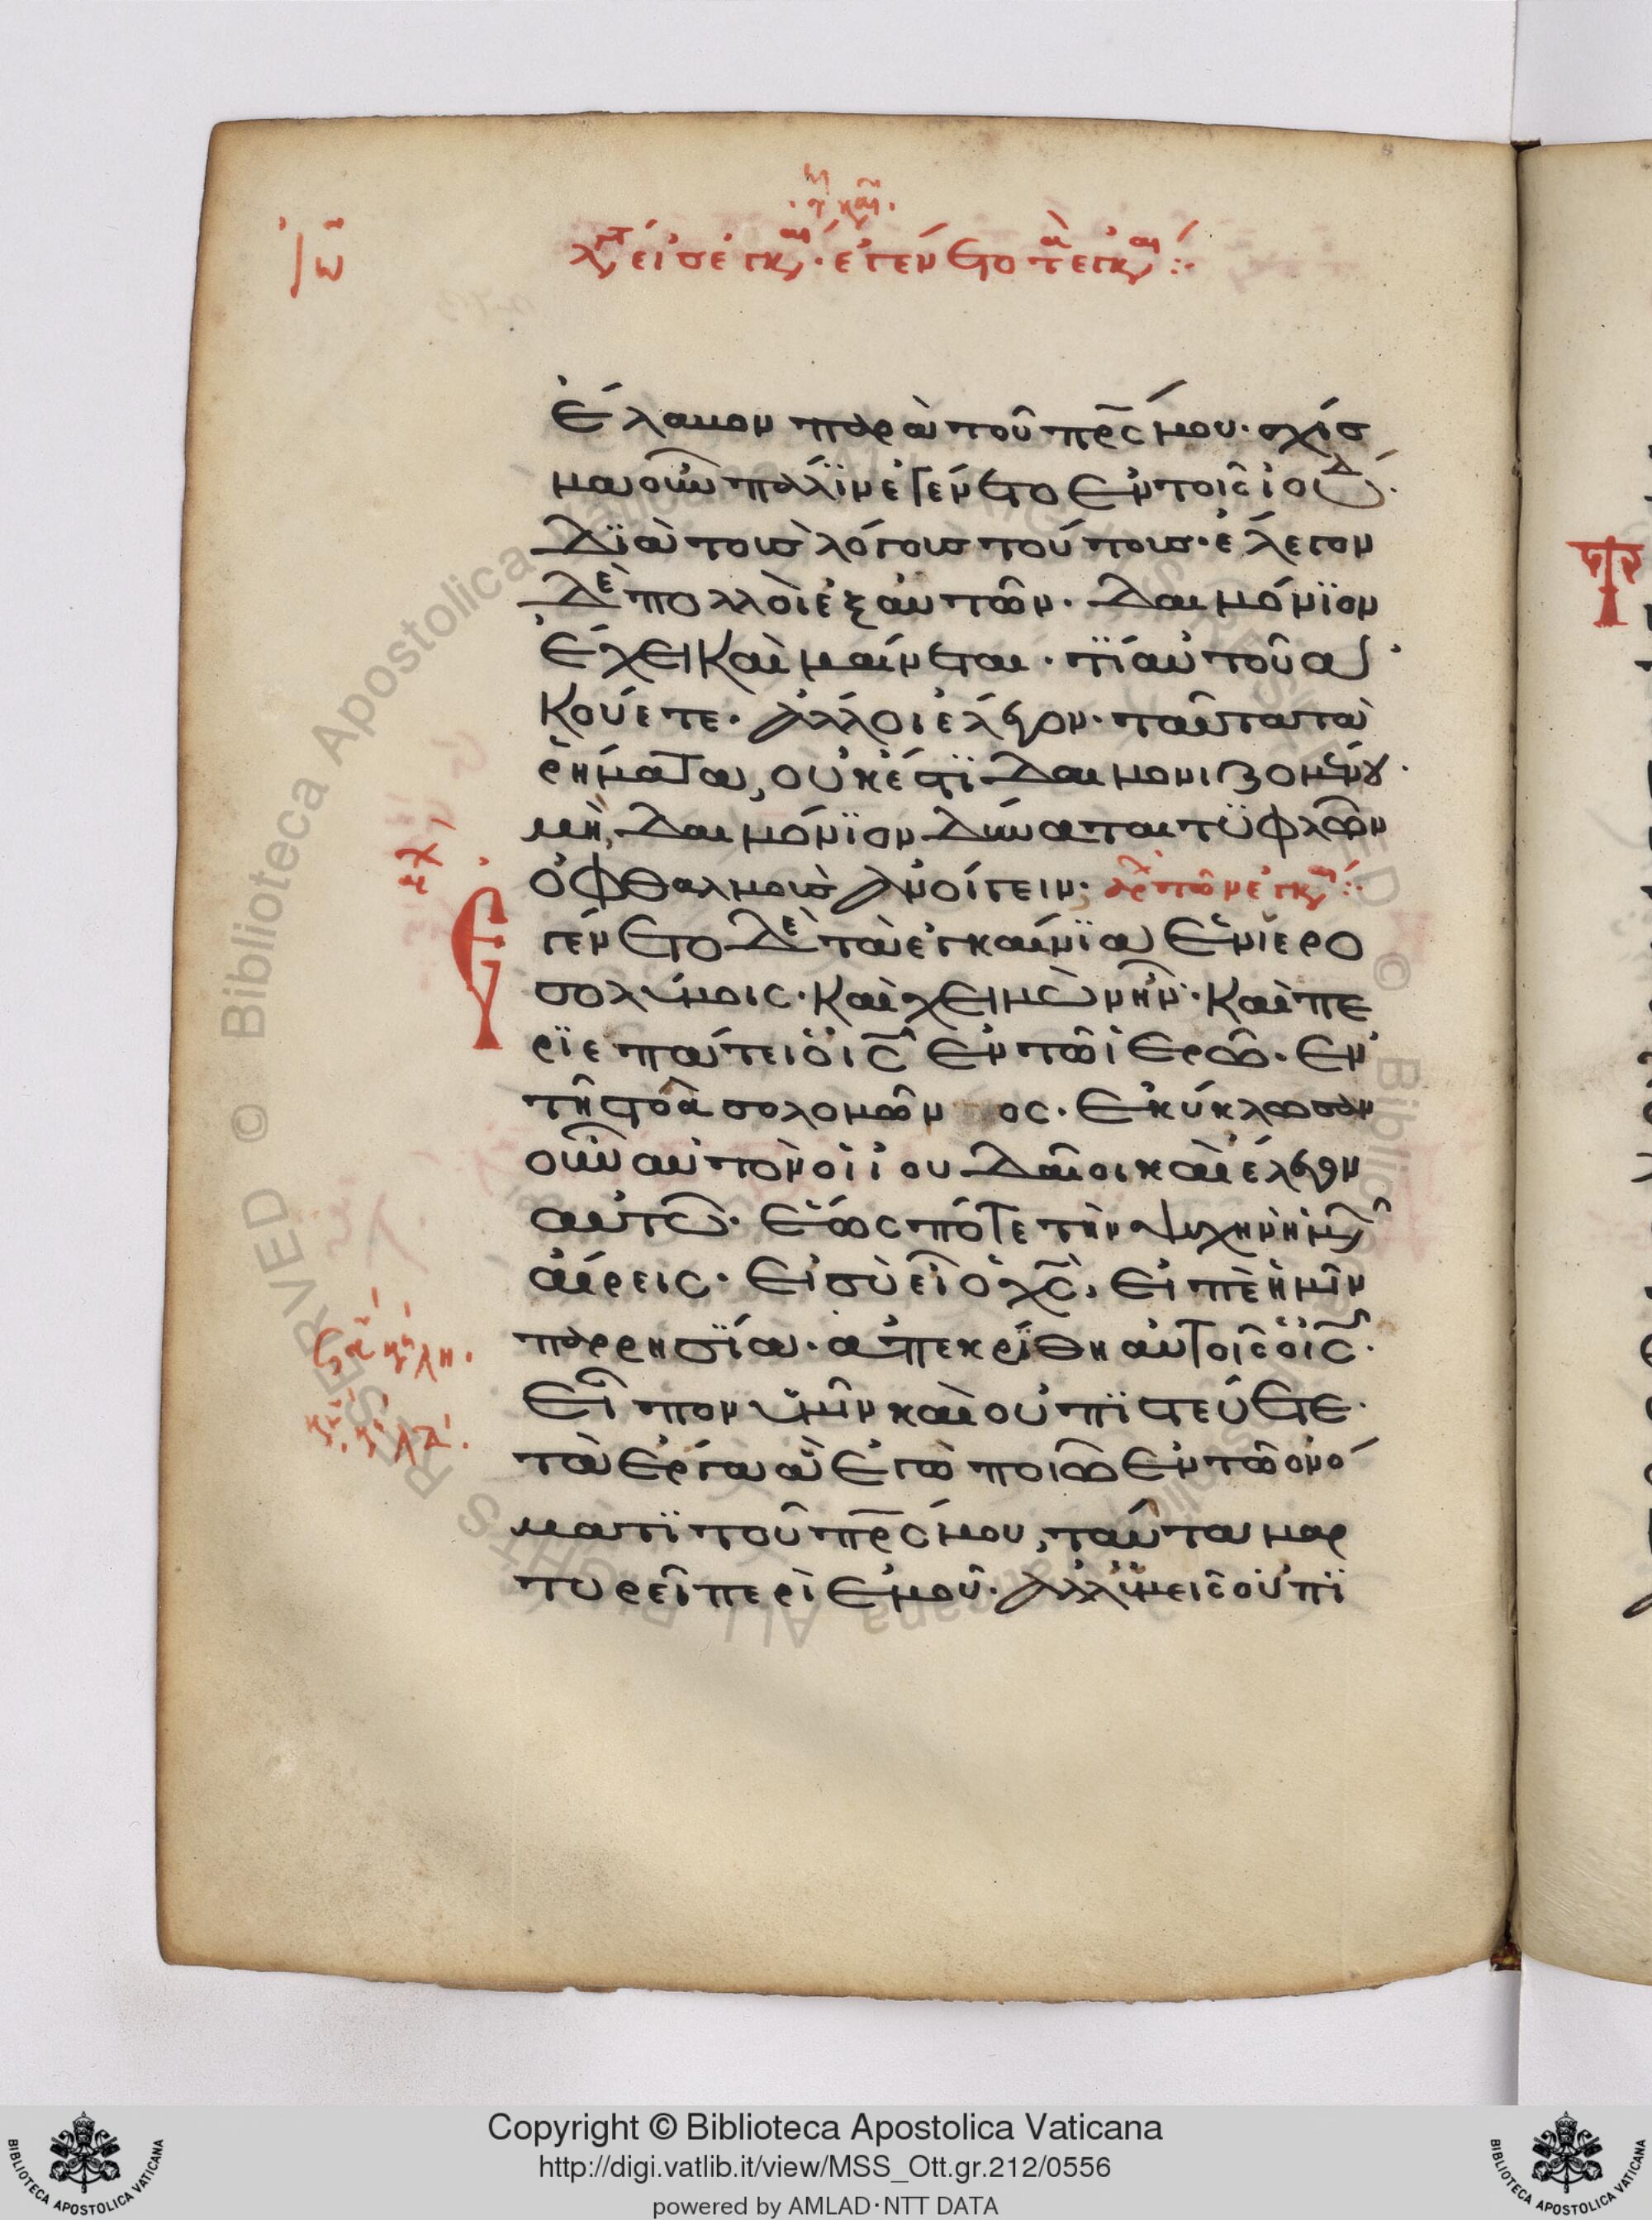 Ἰω
ἔλαβον παρὰ τοῦ πρς μου· σχίσ
μα οὖν πάλϊν ἐγένετο ἐν τοῖς ἰουδ·
δϊὰ τοὺς λόγους τούτους· ἔλεγον
δὲ πολλοὶ ἐξ αὐτῶν· δαιμόνϊον
ἔχει καὶ μαίνεται· τί αὐτοῦ α
κούετε· ἄλλοι ἔλεγον· ταῦτα τὰ
ῥήματα, οὐκ ἔστϊ δαιμονιζομένου·
μὴ, δαιμόνϊον δύναται τϋφλῶν
ὀφθαλμοὺς ἀνοίγειν;
Ε
γένετο δὲ τὰ ἐγκαίνϊα ἐν ἱερο
σολύμοις· καὶ χειμὼν ἦν· καὶ πε
ρϊεπάτει ὁ ις ἐν τῶ ἱερῶ· ἐν
τῆ στοᾶ σολομῶν ος· ἐκύκλωσαν
οὖν αὐτὸν οἱ ἰουδαῖοι καὶ ἔλεγον
αὐτῶ· ἕως πότε τὴν ψυχὴν ἡμῶν
αἴρεις· εἰ σὺ εἶ ὁ χς, εἰπὲ ἡμῖν
παρρησϊα· ἀπεκρίθη αὐτοῖς ὁ ις·
εἶπον ὑμῖν καὶ οὐ πϊστεύετε·
τὰ ἔργα ἃ ἐγὼ ποιῶ ἐν τῶ ὀνό
ματϊ τοῦ πρς μου, ταῦτα μαρ
τυρεῖ περὶ ἐμοῦ· ἀλλ' ὑμεῖς οὐ πϊ
Copyright © Biblioteca Apostolica Vaticana
http://digi.vatlib.it/view/MSS_Ott.gr.212/0556
powered by AMLAD·NTT DATA
BIBLIOTECA APOSTOLICA VATICANA
BIBLIOTECA APOSTOLICA VATICANA